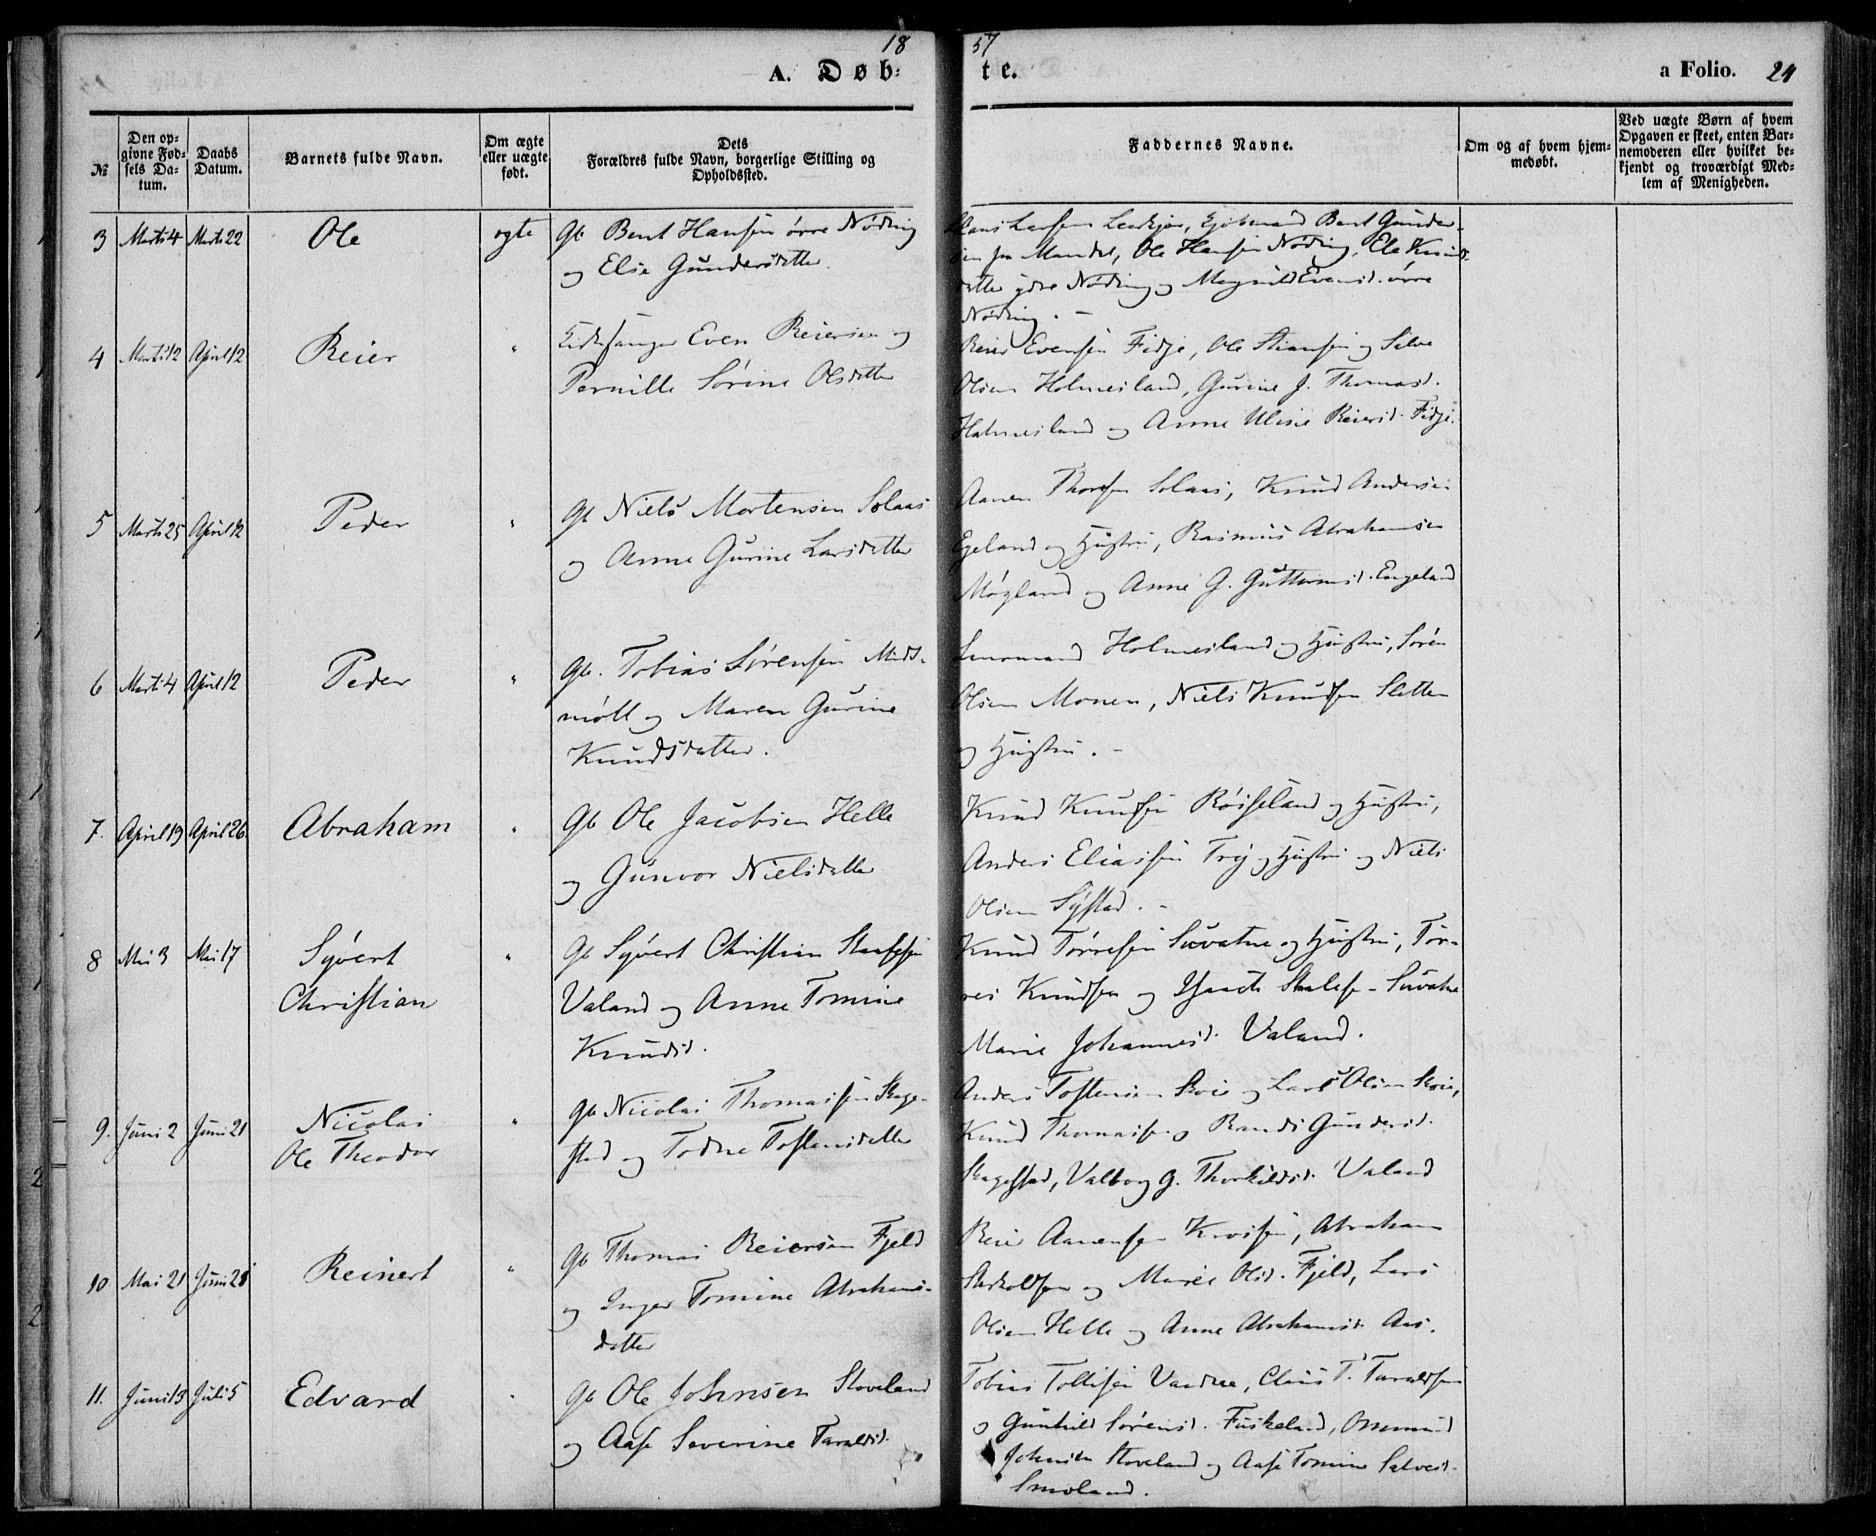 18
57
A. Døb-
te.
a Folio. 24
№
Den op-
givne Fød-
sels Da-
tum.
Daabs
Datum.
Barnets fulde Navn.
Om ægte
eller uægte
født.
Dets
Forældres fulde Navn, borgerlige Stilling og
Opholdssted.
Faddernes Navne.
Om og af hvem hjem-
medøbt.
Ved uægte Børn af hvem
Opgaven er skeet, enten Bar-
nemoderen eller hvilket be-
kjendt og troværdigt Med-
lem af Menigheden.
3 Marts 4 Marts 22 Ole ægte Gb Bent Hansen øvre Nøding
og Elise Gundersdatter
Bent Gunder-
Mandal, Ole Hansen Nøding
Nøding og
Nøding. -
4 Marts 12 April 12 Reier " Kirkesanger Even Reiersen og
Pernille Sørine Olsdatter
Reier Evensen Fidje, Ole og
Olsen Holmesland, Gurine J. Thomasd.
Holmesland og Anne Reiersd. Fidje.
5 Marts 25 April 12 Peder " Gb Niels Mortensen Solaas
og Anne Gurine Larsdatter
Aanen Solaas, Knud Andersen
Egeland og Hustru, Rasmus Abrahamsen
Møgland og Anne G. Guttormsd. Engeland
6 Marts 4 April 12 Peder " Gb. Tobias Sørensen Midt-
møll og Maren Gurine
Knudsdatter.
Holmesland og Hustru, Søren
Olsen Monen, Niels Knudsen Sletten
og Hustru. -
7. April 19 April 26 Abraham " Gb Ole Jacobsen Helle
og Gunvor Nielsdatter
Knud Knudsen Røiseland og Hustru,
Anders Eliassen Try og Hustru og Niels
Olsen
8 Mai 3 Mai 17 Syvert
Christian " Gb Syvert Christian
Valand og Anne Tomine
Knudsd.
Knud Tørresen og Hustru, Tør-
res Knudsen og
Marie Johannesd. Valand.
9. Juni 2 Juni 21 Nicolai
Ole Theodor " Gb Nicolai Thomassen Skage-
stad og Todne Tostensdatter
Anders Tostensen Skoie og Lars Olsen Skoie,
Knud Thomassen og Randi Gundersd.
Skagestad, Valborg G. Thorkildsd. Valand
10 Mai 21 Juni 21 Reinert " Gb Thomas Reiersen Fjeld
og Inger Tomine Abrahams-
datter
Reier Aanensen Abraham
og Marie Olsd. Fjeld, Lars
Olsen Helle og Anne Abrahamsd. Aas.
11. Juni 13 Juli 5 Edvard " Gb Ole Johnsen Stoveland
og Aase Severine Taraldsd.
Tobias Tollisen Claus T. Taraldsen
og Gunhild Sørensd. Fuskeland, Osmund
Johnsen Stoveland og Aase Tomine